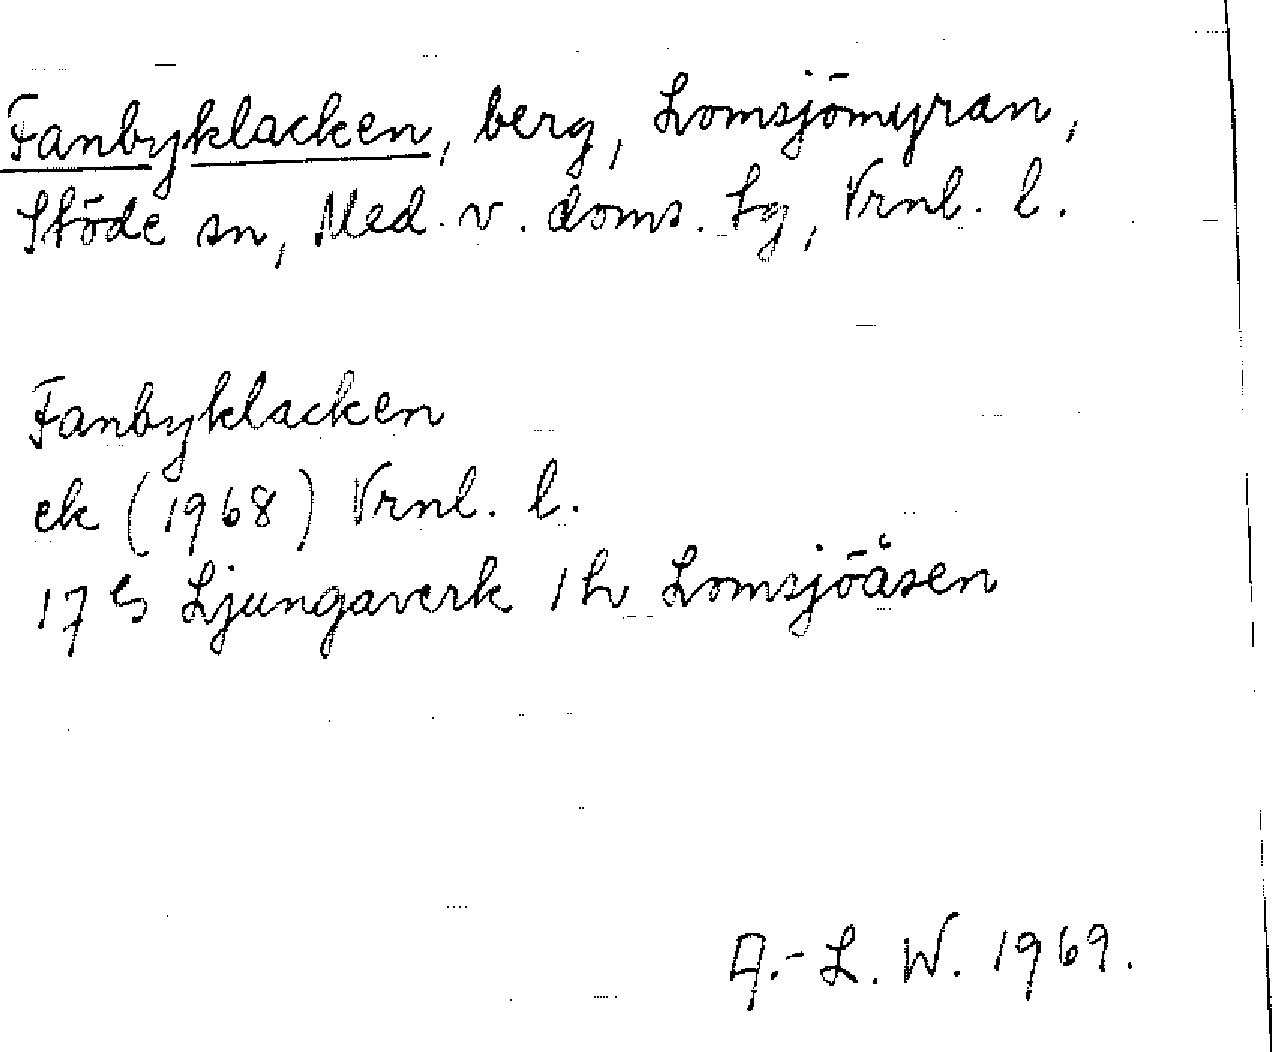 Fanbyklacken, berg, Lomsjömyran,
Stöde sn, Med. v. doms. tg, Vrnl. l.
Fanbyklacken
ek (1968) Vrnl. l.
17 G Ljungaverk 1h Lomsjöåsen
A.-L. W. 1969.